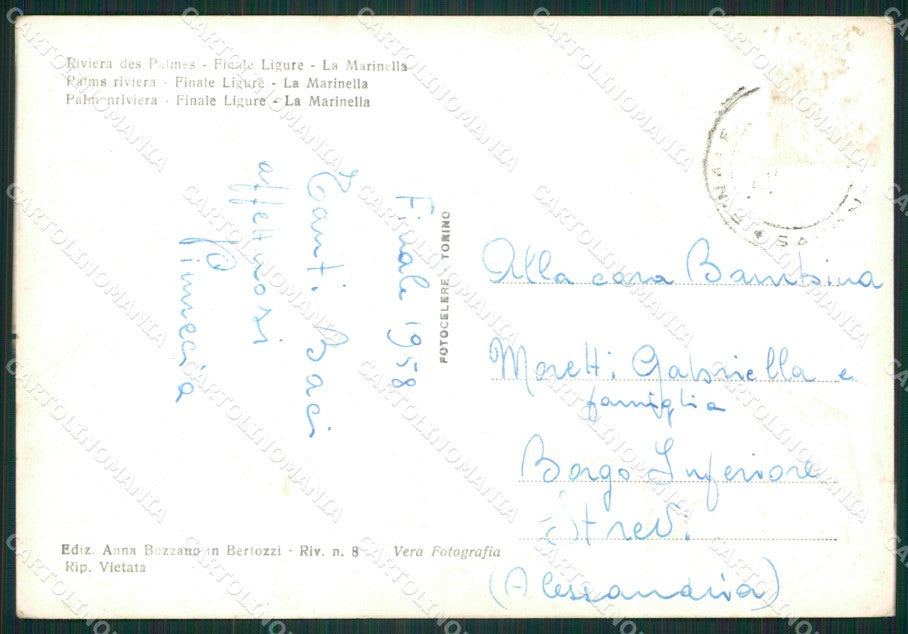 Riviera des Palmes - Finale Ligure - La Marinella
Palms riviera - Finale Ligure - La Marinella
Palmenriviera - Finale Ligure - La Marinella
Finale 1958
Tanti Baci
affettuosi
FOTOCELERE TORINO
Alla cara Bambina
Moretti Gabriella e
famiglia
Borgo Inferiore
Strevi
(Alessandria)
Ediz. Anna Buzzano in Bertozzi - Riv. n. 8 Vera Fotografia
Rip. Vietata
CARTOLINOMANIA